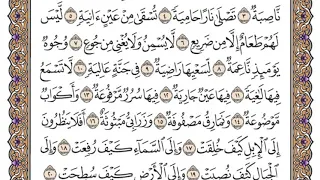 نَّاصِبَةٌ ٣ تَصْلَىٰ نَارًا حَامِيَةً ٤ تُسْقَىٰ مِنْ عَيْنٍ ءَانِيَةٍ ٥ لَّيْسَ
لَهُمْ طَعَامٌ إِلَّا مِن ضَرِيعٍ ٦ لَّا يُسْمِنُ وَلَا يُغْنِي مِن جُوعٍ ٧ وُجُوهٌ
يَوْمَئِذٍ نَّاعِمَةٌ ٨ لِّسَعْيِهَا رَاضِيَةٌ ٩ فِي جَنَّةٍ عَالِيَةٍ ١٠ لَّا تَسْمَعُ
فِيهَا لَٰغِيَةً ١١ فِيهَا عَيْنٌ جَارِيَةٌ ١٢ فِيهَا سُرُرٌ مَّرْفُوعَةٌ ١٣ وَأَكْوَابٌ
مَّوْضُوعَةٌ ١٤ وَنَمَارِقُ مَصْفُوفَةٌ ١٥ وَزَرَابِيُّ مَبْثُوثَةٌ ١٦ أَفَلَا يَنظُرُونَ
إِلَى الْإِبِلِ كَيْفَ خُلِقَتْ ١٧ وَإِلَى السَّمَاءِ كَيْفَ رُفِعَتْ ١٨ وَإِلَى
الْجِبَالِ كَيْفَ نُصِبَتْ ١٩ وَإِلَى الْأَرْضِ كَيْفَ سُطِحَتْ ٢٠